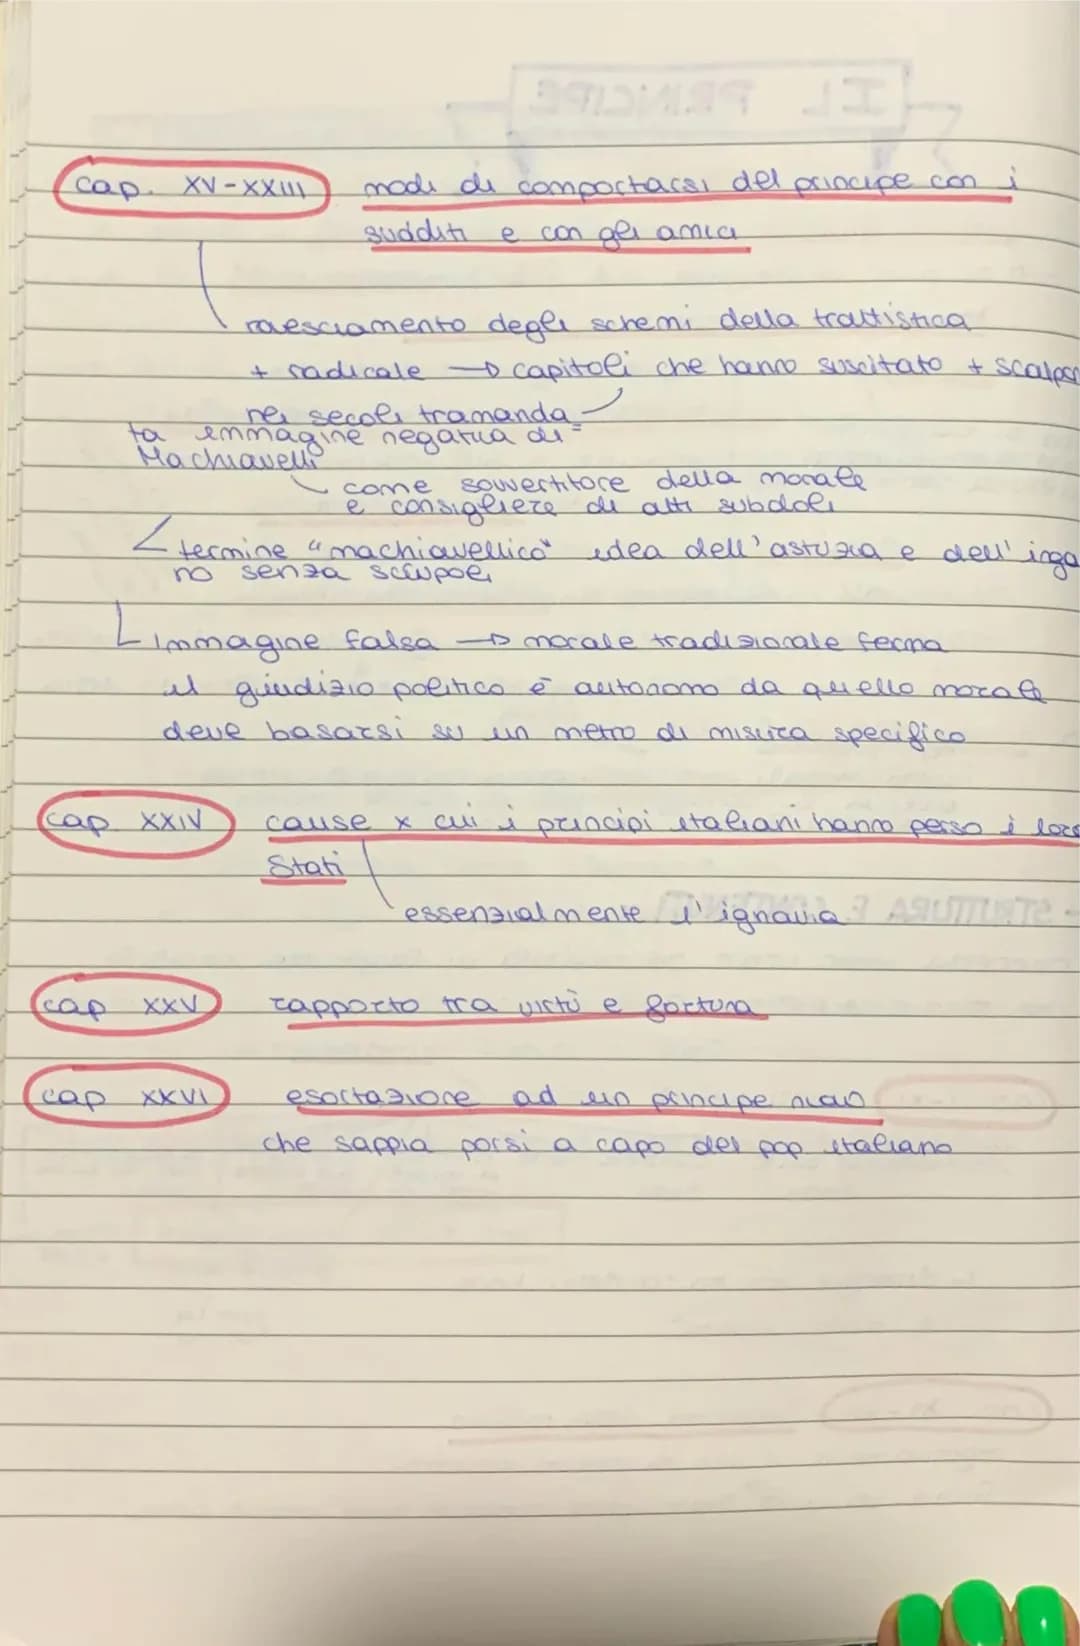 cap. XV-XXIII modi di comportarsi del principe con i
sudditi e con gli amici
rovesciamento degli schemi della trattistica
+ radicale → capitoli che hanno suscitato + scalpor
nei secoli tramanda=
ta immagine negativa di
Machiavelli
come sovvertitore della morale
e consigliere di atti subdoli
termine "machiavellico" idea dell'astuzia e dell'inga
no senza scrupoli
immagine falsa → morale tradizionale ferma
il giudizio politico è autonomo da quello morale
deve basarsi su un metro di misura specifico
cap XXIV cause x cui i principi italiani hanno perso i loro
Stati
essenzialmente l'ignavia
cap XXV rapporto tra virtù e fortuna
cap XXVI esortazione ad un principe nuovo
che sappia porsi a capo del pop italiano